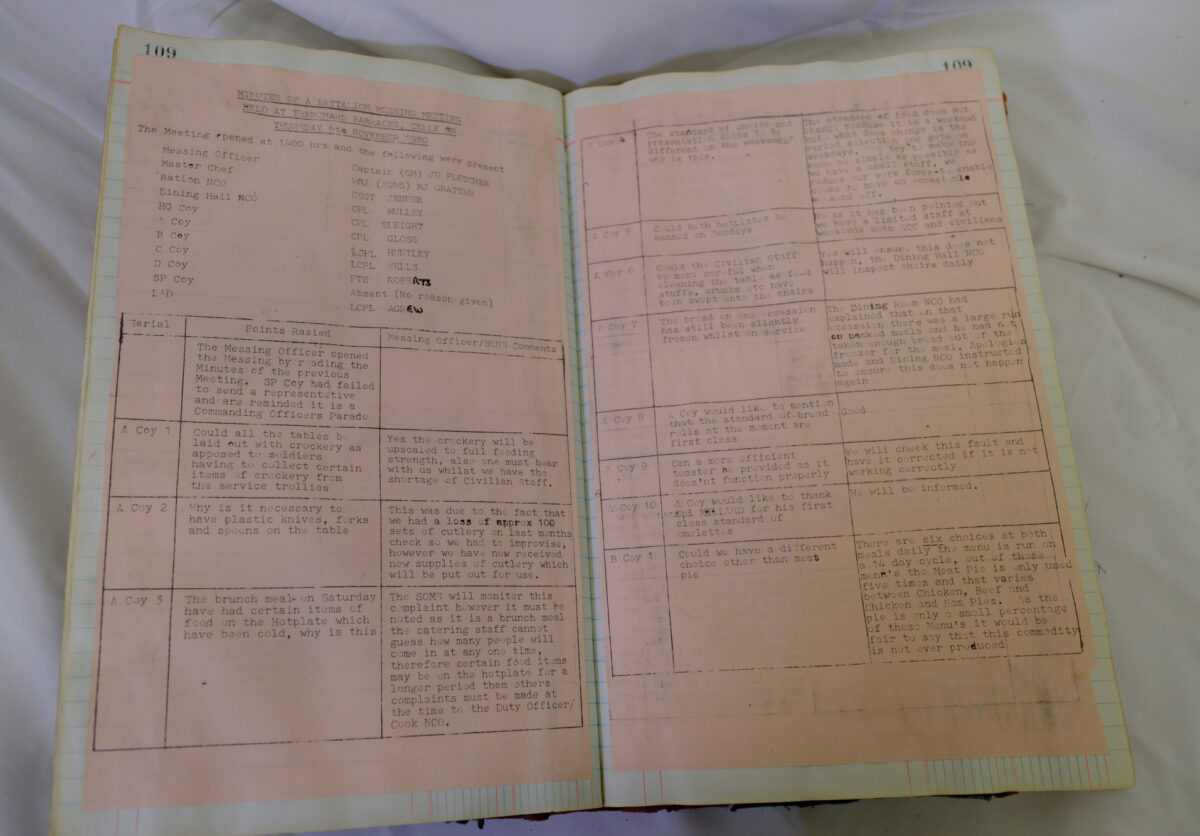 109
MINUTES OF A BATTALION MESSING MEETING
HELD AT TRENCHARD BARRACKS, CELLE ON
THURSDAY 6th NOVEMBER 1980
The Meeting opened at 1400 hrs and the following were present:
Messing Officer Captain (QM) JD FLETCHER
Master Chef WO2 (SQMS) MJ GRATTAN
Ration NCO CSGT JENNER
Dining Hall NCO CPL MULLEY
HQ Coy CPL SLEIGHT
A Coy CPL GLOSS
B Coy LCPL HUNTLEY
C Coy LCPL WELLS
D Coy PTE ROBERTS
SP Coy Absent (No reason given)
LAD LCPL AGNEW
Serial Points Rasied Messing Officer/SQMS Comments
The Messing Officer opened
the Messing by reading the
Minutes of the previous
Meeting. SP Coy had failed
to send a representative
and are reminded it is a
Commanding Officers Parade
A Coy 1
Could all the tables be
laid out with crockery as
apposed to soldiers
having to collect certain
items of crockery from
the service trollies
Yes the crockery will be
upscaled to full feeding
strength, also one must bear
with us whilst we have the
shortage of Civilian Staff.
A Coy 2
Why is it necessary to
have plastic knives, forks
and spoons on the table
This was due to the fact that
we had a loss of approx 100
sets of cutlery on last months
check so we had to improvise,
however we have now received
new supplies of cutlery which
will be put out for use.
A Coy 3
The brunch meal on Saturday
have had certain items of
food on the Hotplate which
have been cold, why is this
The SQMS will monitor this
complaint however it must be
noted as it is a brunch meal
the catering staff cannot
guess how many people will
come in at any one time,
therefore certain food items
may be on the hotplate for a
longer period them others
complaints must be made at
the time to the Duty Officer/
Cook NCO.
109
A Coy 4
The standard of choice and
presentation seems to be
different on the weekends'
why is this.
The standard of food does not
change because it is a weekend
what does change is the
varied selection one gets on
weekdays. We try to make the
menu as simple as possible as
we have a small staff, we
reduce our work force to enable
cooks to have an occasional
weekend off.
A Coy 5
Could both hotplates be
manned on Sundays
No as it has been pointed out
we have a limited staff at
weekends both ACC and civilians
A Coy 6
Could the Civilian Staff
be more careful when
cleaning the table as food
stuffs, crumbs etc have
been swept onto the chairs
Yes will ensure this does not
happen, the Dining Hall NCO
will inspect chairs daily
A Coy 7
The bread on one occassion
has still been slightly
frozen whilst on service
The Dining Room NCO had
explained that on that
occassion there was a large run
on packed meals and he had not
taken enough bread out of the
freezer for the meal. Apologies
made and Dining NCO instructed
to ensure this does not happen
again
A Coy 8
A Coy would like to mention
that the standard of bread
rolls at the moment are
first class
Good
A Coy 9
Can a more efficient
toaster be provided as it
does'nt function properly
We will check this fault and
have it corrected if it is not
working correctly
A Coy 10
A Coy would like to thank
Cpl MILLARD for his first
class standard of
omelettes
He will be informed.
B Coy 1
Could we have a different
choice other than meat
pie
There are six choices at both
meals daily the menu is run on
a 14 day cycle, out of those
menu's the Meat Pie is only used
five times and that varies
between Chicken, Beef and
Chicken and Ham Pies. As the
pie is only a small percentage
of these Menu's it would be
fair to say that this commodity
is not over produced